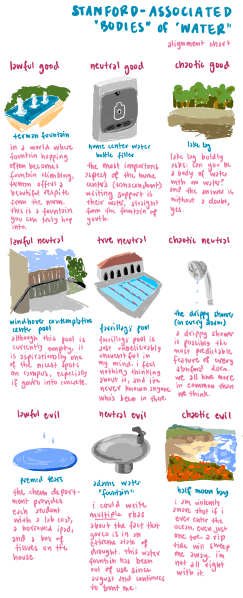 STANFORD-ASSOCIATED
"BODIES" of "WATER"
alignment chart
lawful good
neutral good
chaotic good
terman fountain
in a world where
fountain hopping
often becomes
fountain climbing,
terman offers a
beautiful respite
from the norm.
this is a fountain
you can truly hop
into.
home center water
bottle filler
the most important
aspect of the home
center (nonsenchalent)
writing support is
their water, straight
from the fountain of
youth.
lake lag
lake lag boldly
asks: can you be
a body of water
with no water?
and the answer is
without a doubt,
yes.
lawful neutral
true neutral
chaotic neutral
windhover contemplative
center pool
although this pool is
currently empty, it
is aspirationally one
of the nicest spots
on campus, especially
if you're into concrete.
farrillaga pool
farrillaga pool is
just unbelievably
uneventful in
my mind. i feel
nothing thinking
about it, and i've
never known anyone
who's been in there.
the drippy shower
(in every dorm)
a drippy shower
is possibly the
most predictable
feature of every
stanford dorm.
we all have more
in common than
we think.
lawful evil
neutral evil
chaotic evil
premed tears
the chem depart-
ment provides
each student
with a lab coat,
a borrowed ipad,
and a box of
tissues on the
house.
adams water
"fountain"
i could write
multiple
about the fact that
is in an
extreme state of
drought. this water
fountain has been
out of use since
august and continues
to haunt me.
half moon bay
i am violently
aware that if i
ever enter the
ocean, even just
one toe- a rip
tide will sweep
me away. i'm
not all right
with it.